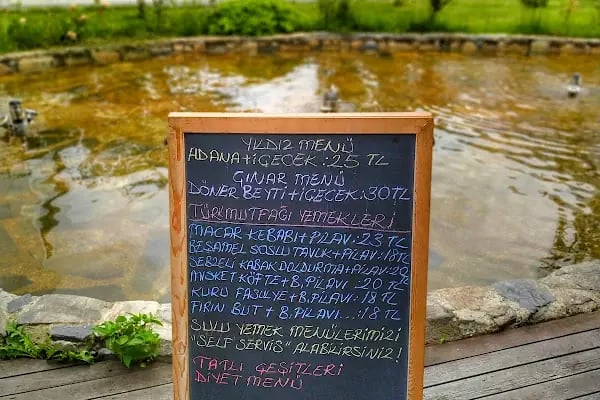 YILDIZ MENÜ
ADANA+İÇECEK:25 TL
ÇINAR MENÜ
DÖNER BEYTİ+İÇECEK:30TL
TÜRK MUTFAĞI YEMEKLERİ
MACAR KEBABI+PİLAV:23 TL
BEŞAMEL SOSLU TAVUK+PİLAV:18TL
SEBZELİ KABAK DOLDURMA+PİLAV:20
MİSKET KÖFTE+B.PİLAV..20 TL
KURU FASULYE+B.PİLAV:18 TL
FIRIN BUT +B.PİLAV...:18 TL
SULU YEMEK MENÜLERİMİZİ
"SELF SERVİS" ALABİLİRSİNİZ!
TATLI ÇEŞİTLERİ
DİYET MENÜ